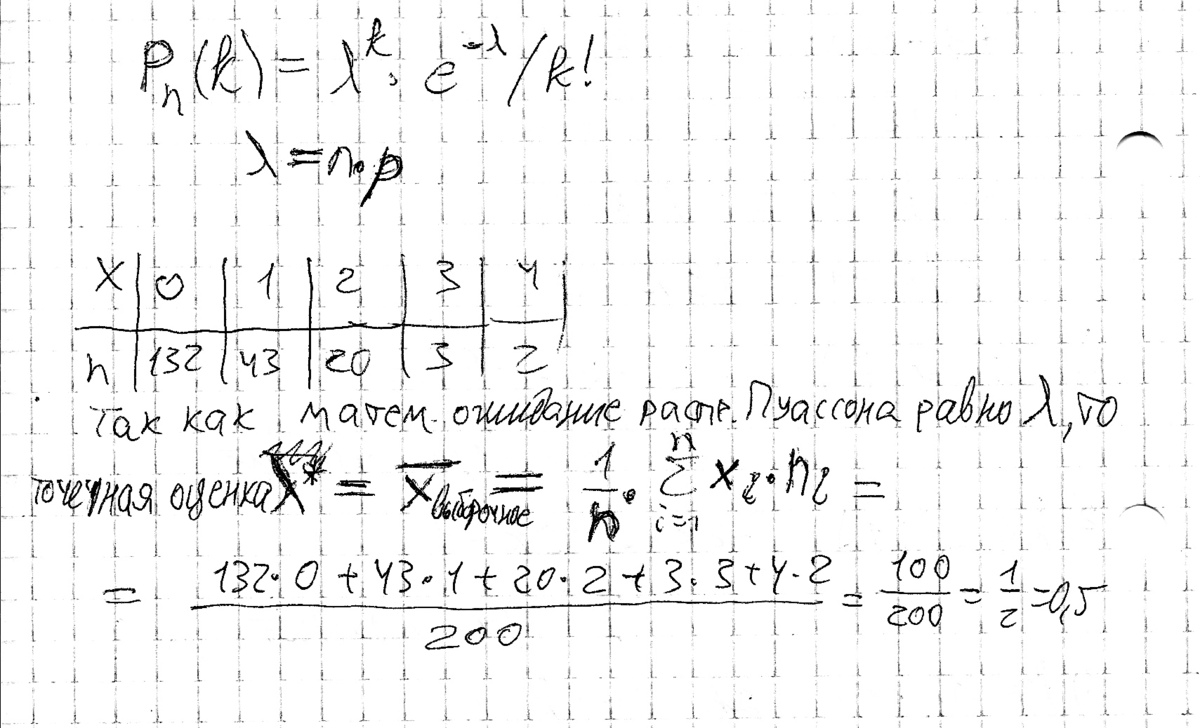 Pn(k) = λ^k · e^-λ / k!
λ = n·p
X | 0 | 1 | 2 | 3 | 4
n | 132 | 43 | 20 | 3 | 2
Так как матем. ожидание распр. Пуассона равно λ, то
точечная оценка λ* = x̄ выборочное = 1/n · Σ(i=1..n) xi · ni =
= (132·0 + 43·1 + 20·2 + 3·3 + 4·2)/200 = 100/200 = 1/2 = 0,5